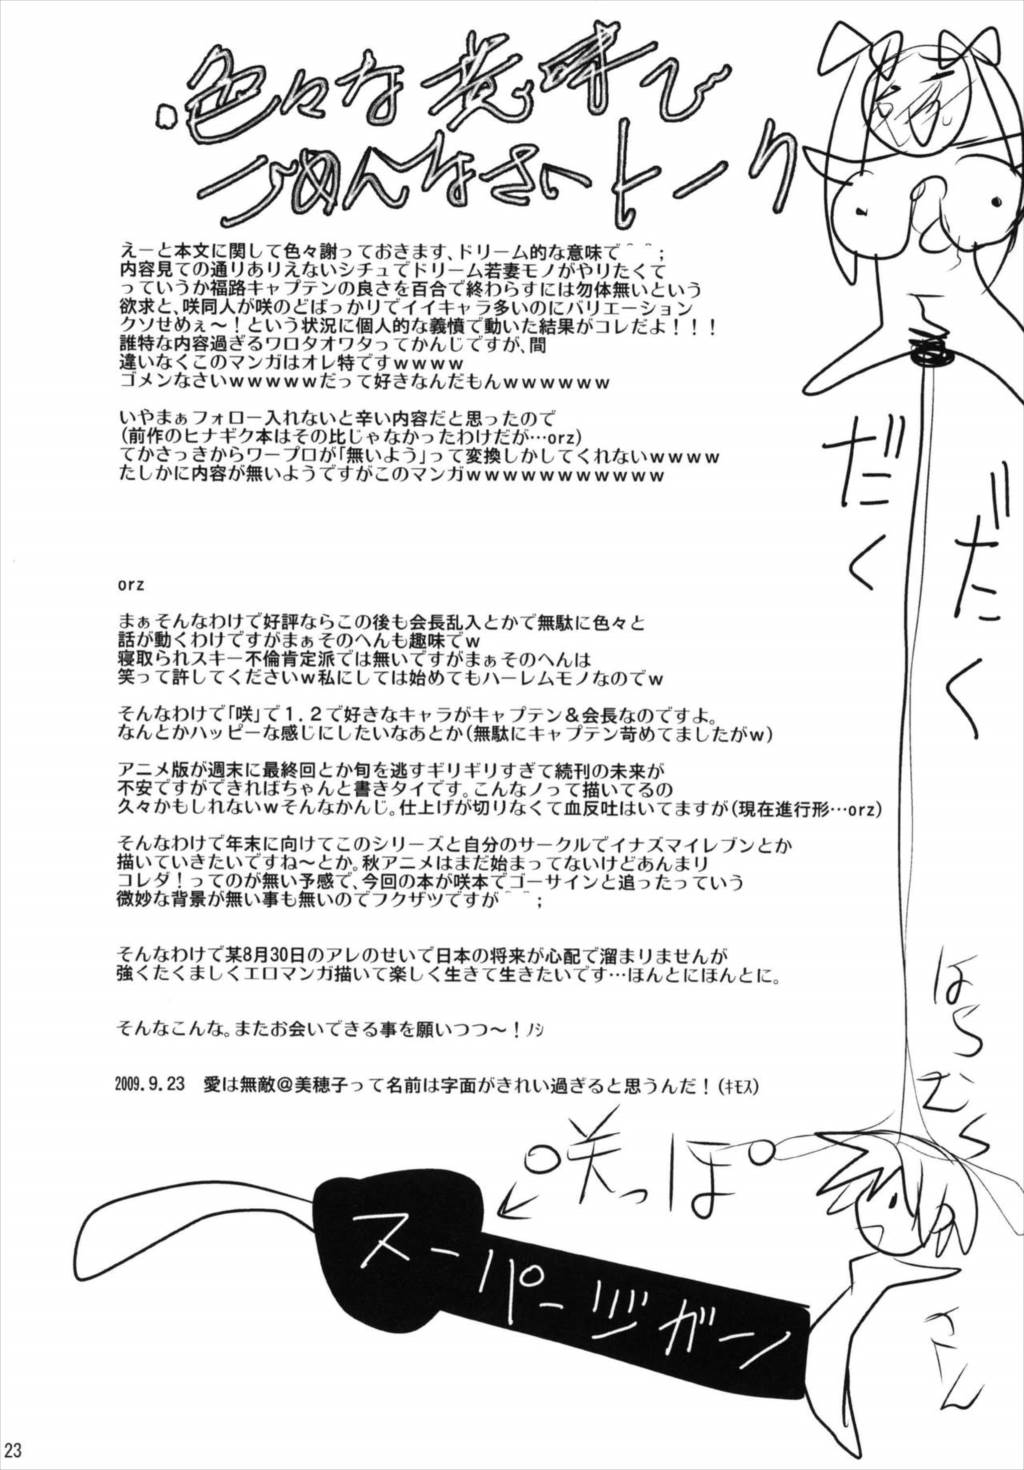 色々な意味で
ごめんなさいトーク
えーと本文に関して色々謝っておきます、ドリーム的な意味で⌒⌒;
内容見ての通りありえないシチュでドリーム若妻モノがやりたくて
っていうか福路キャプテンの良さを百合で終わらすには勿体無いという
欲求と、咲同人が咲のどばっかりでイイキャラ多いのにバリエーション
クソせめぇ～！という状況に個人的な義憤で動いた結果がコレだよ！！！
誰特な内容過ぎるワロタオワタってかんじですが、間
違いなくこのマンガはオレ特ですｗｗｗｗ
ゴメンなさいｗｗｗｗｗだって好きなんだもんｗｗｗｗｗｗ
いやまぁフォロー入れないと辛い内容だと思ったので
(前作のヒナギク本はその比じゃなかったわけだが…orz)
てかさっきからワープロが「無いよう」って変換しかしてくれないｗｗｗｗ
たしかに内容が無いようですがこのマンガｗｗｗｗｗｗｗｗｗｗｗ
orz
まぁそんなわけで好評ならこの後も会長乱入とかで無駄に色々と
話が動くわけですがまぁそのへんも趣味でｗ
寝取られスキー不倫肯定派では無いですがまぁそのへんは
笑って許してくださいｗ私にしては始めてもハーレムモノなのでｗ
そんなわけで「咲」で１.２で好きなキャラがキャプテン＆会長なのですよ。
なんとかハッピーな感じにしたいなあとか(無駄にキャプテン苛めてましたがｗ)
アニメ版が週末に最終回とか旬を逃すギリギリすぎて続刊の未来が
不安ですができればちゃんと書きタイです。こんなノって描いてるの
久々かもしれないｗそんなかんじ。仕上げが切りなくて血反吐はいてますが(現在進行形…orz)
そんなわけで年末に向けてこのシリーズと自分のサークルでイナズマイレブンとか
描いていきたいですね～とか。秋アニメはまだ始まってないけどあんまり
コレダ！ってのが無い予感で、今回の本が咲本でゴーサインと追ったっていう
微妙な背景が無い事も無いのでフクザツですが⌒⌒;
そんなわけで某8月30日のアレのせいで日本の将来が心配で溜まりませんが
強くたくましくエロマンガ描いて楽しく生きて生きたいです…ほんとにほんとに。
そんなこんな。またお会いできる事を願いつつ～！ﾉｼ
2009.9.23　愛は無敵@美穂子って名前は字面がきれい過ぎると思うんだ！(ｷﾓｽ)
だくだく
はらむら
さん
咲っぽ
スーパーヅガーン
23